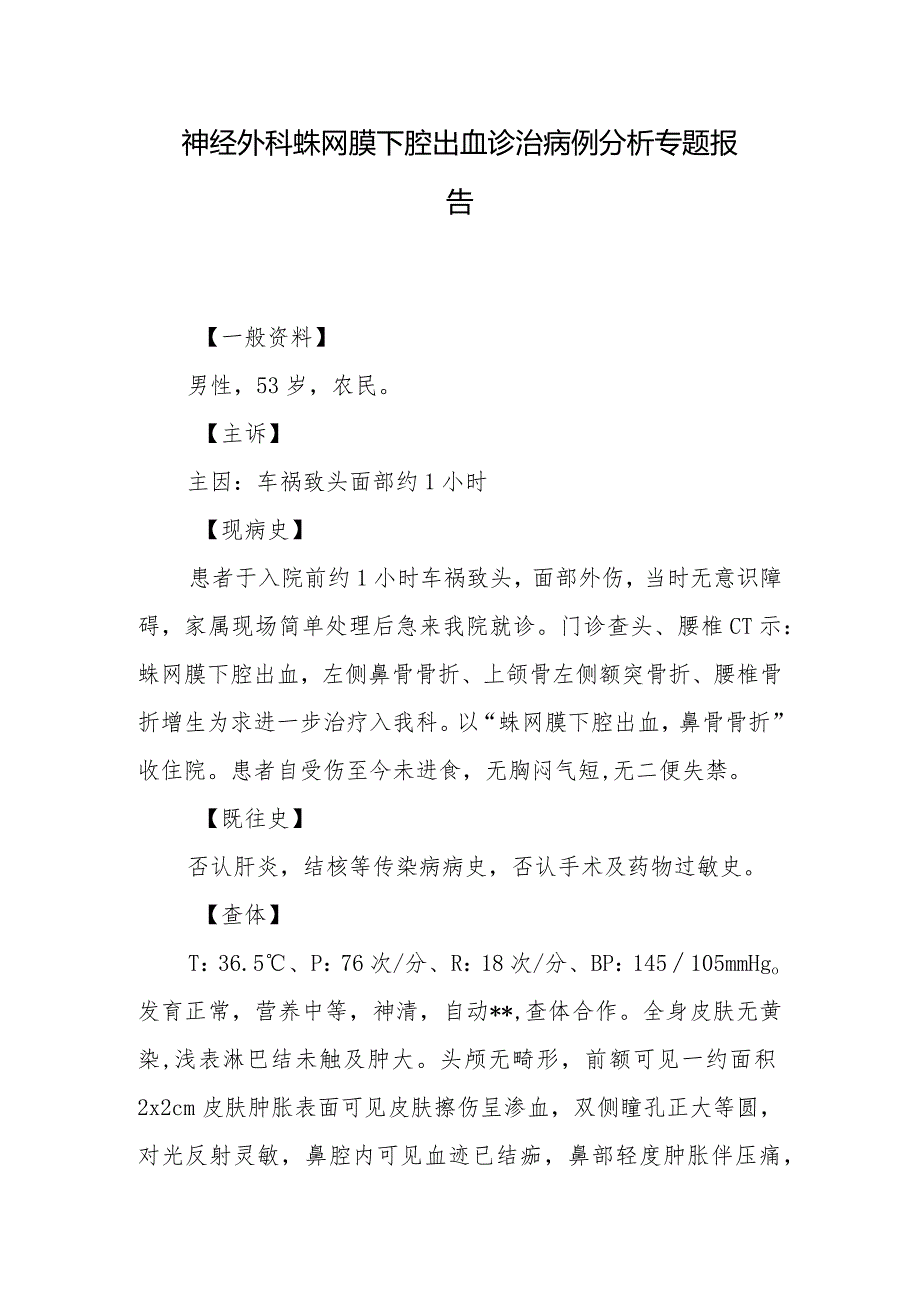 神经外科蛛网膜下腔出血诊治病例分析专题报
告
【一般资料】
男性，53岁，农民。
【主诉】
主因：车祸致头面部约1小时
【现病史】
患者于入院前约1小时车祸致头，面部外伤，当时无意识障
碍，家属现场简单处理后急来我院就诊。门诊查头、腰椎CT示：
蛛网膜下腔出血，左侧鼻骨骨折、上颌骨左侧额突骨折、腰椎骨
折增生为求进一步治疗入我科。以“蛛网膜下腔出血，鼻骨骨折”
收住院。患者自受伤至今未进食，无胸闷气短,无二便失禁。
【既往史】
否认肝炎，结核等传染病病史，否认手术及药物过敏史。
【查体】
T：36.5℃、P：76次/分、R：18次/分、BP：145／105mmHg。
发育正常，营养中等，神清，自动**,查体合作。全身皮肤无黄
染,浅表淋巴结未触及肿大。头颅无畸形，前额可见一约面积
2x2cm皮肤肿胀表面可见皮肤擦伤呈渗血，双侧瞳孔正大等圆，
对光反射灵敏，鼻腔内可见血迹已结痂，鼻部轻度肿胀伴压痛，